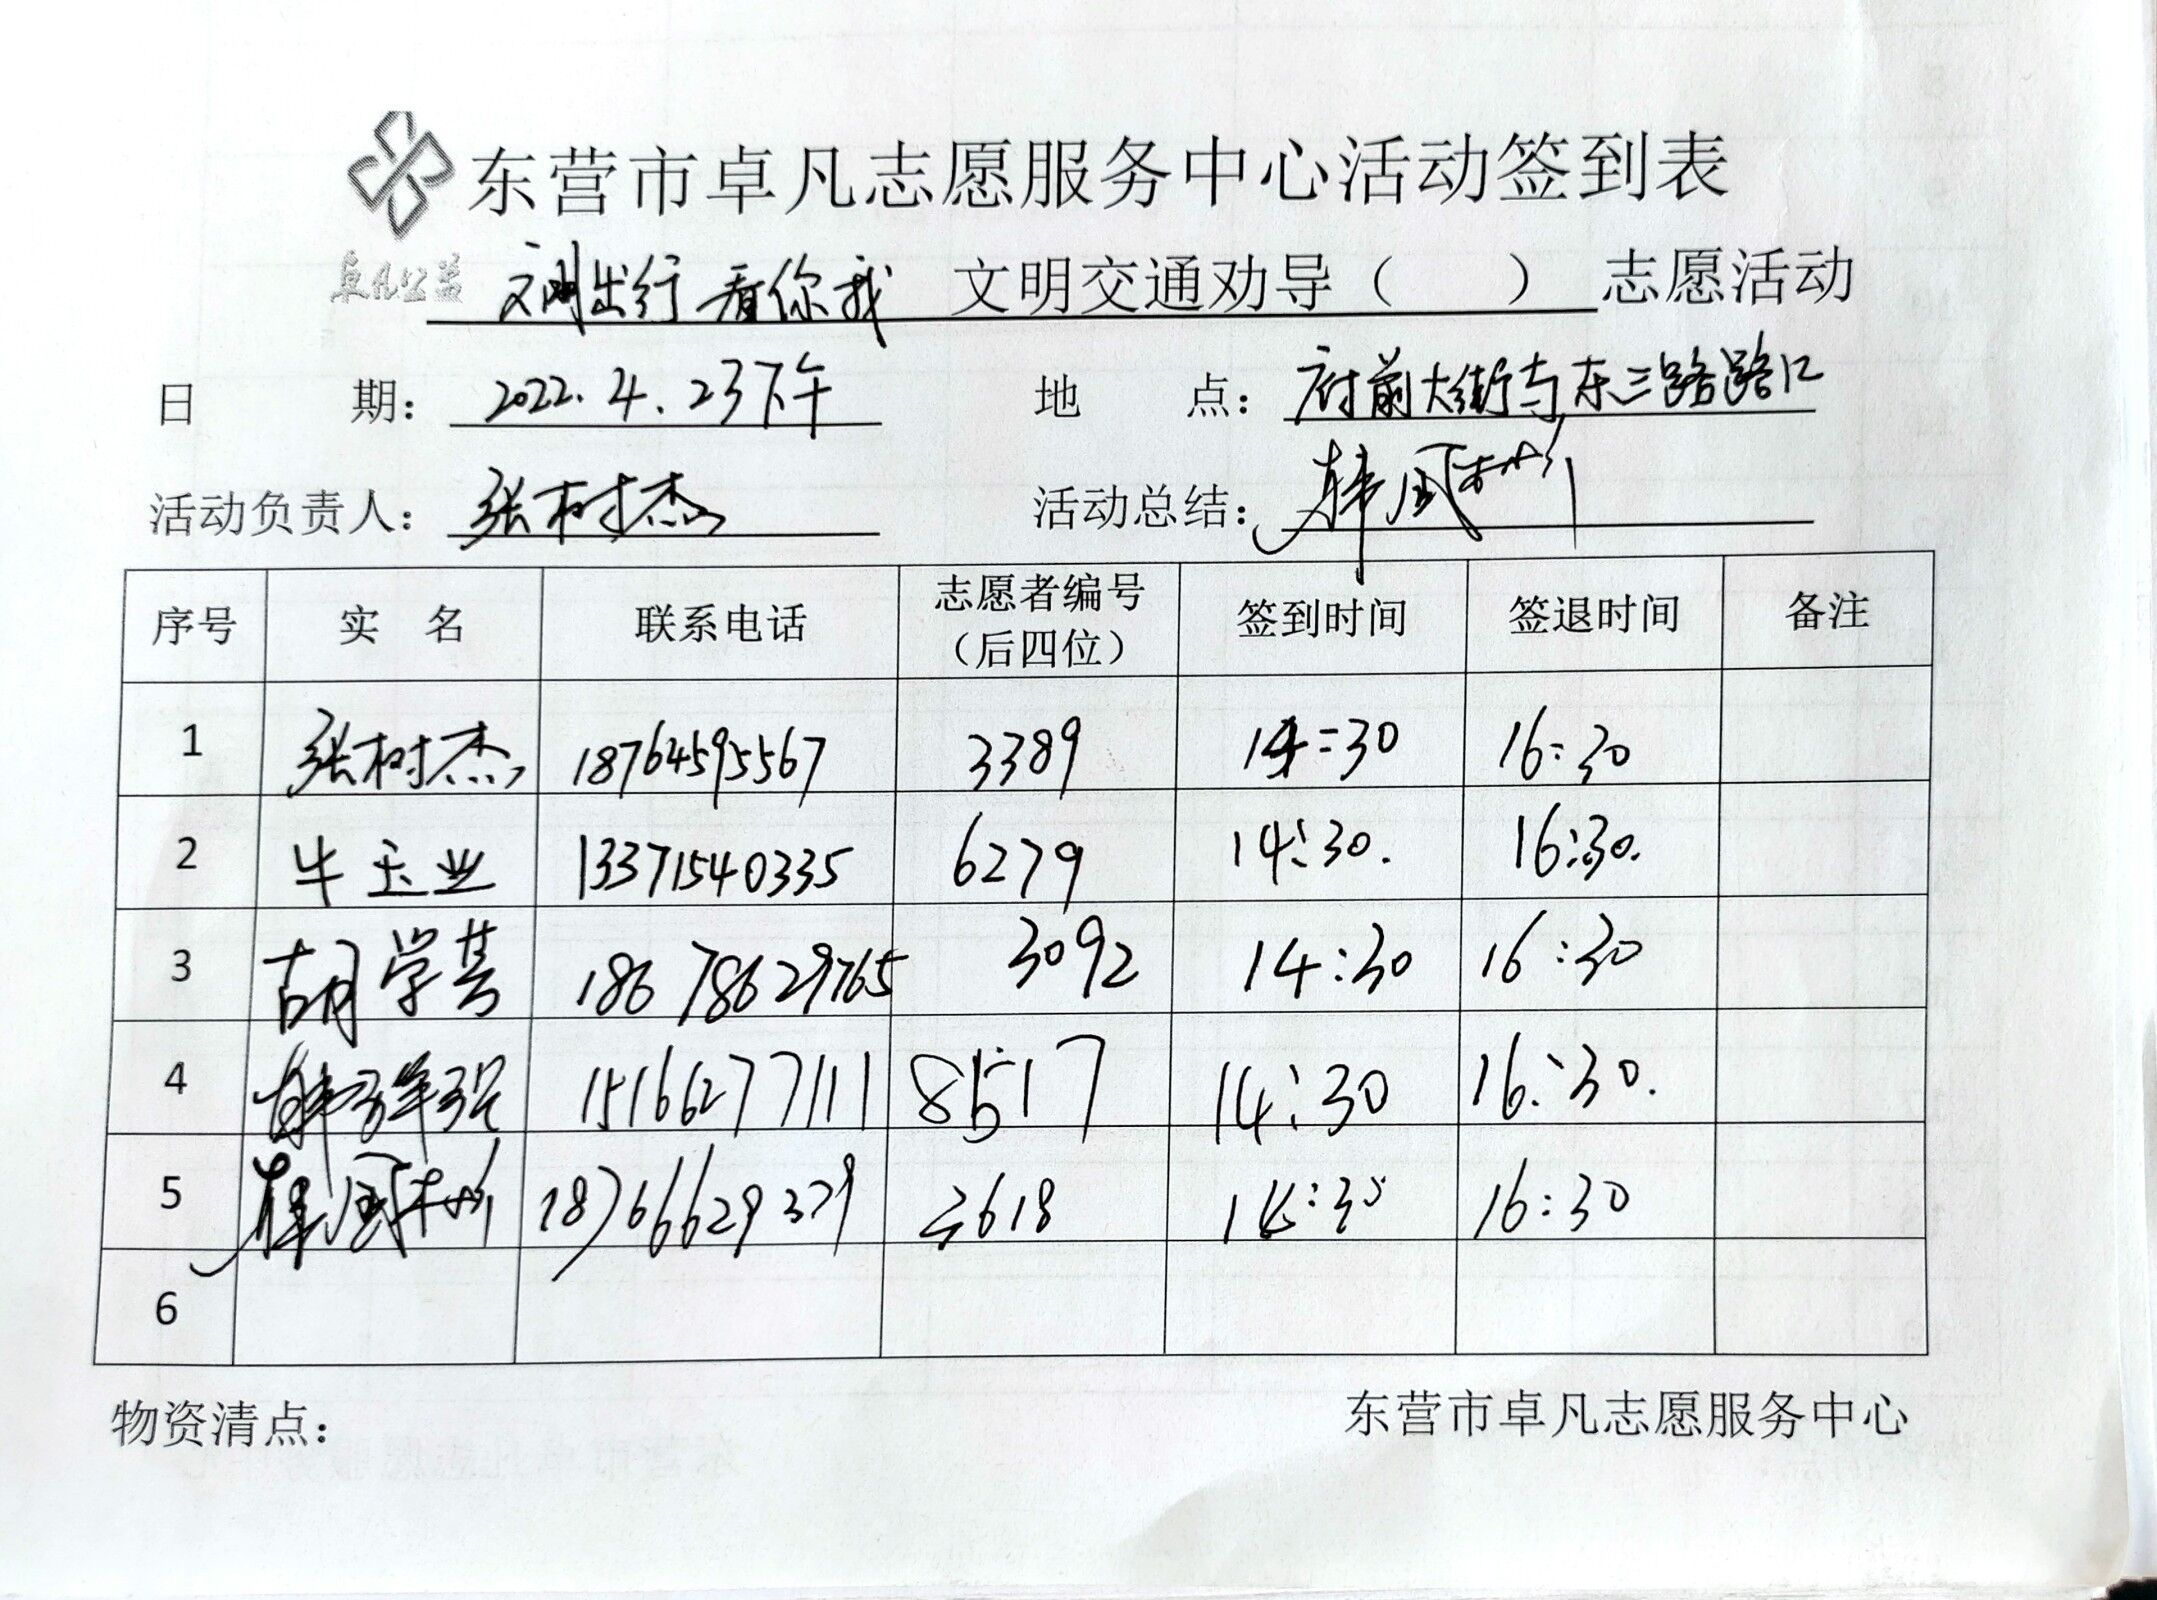 东营市卓凡志愿服务中心活动签到表
卓凡公益
文明出行 看你我 文明交通劝导（ ）志愿活动
日 期： 2022.4.23下午 地 点： 府前大街与东三路路口
活动负责人： 张树杰 活动总结： 韩凤
序号 实 名 联系电话 志愿者编号（后四位） 签到时间 签退时间 备注
1 张树杰 18764595567 3389 14:30 16:30
2 牛玉业 13371540335 6279 14:30. 16:30.
3 胡学芸 18678629765 3092 14:30 16:30
4 15166277111 8517 14:30 16:30.
5 18766629379 2618 14:30 16:30
6
物资清点： 东营市卓凡志愿服务中心